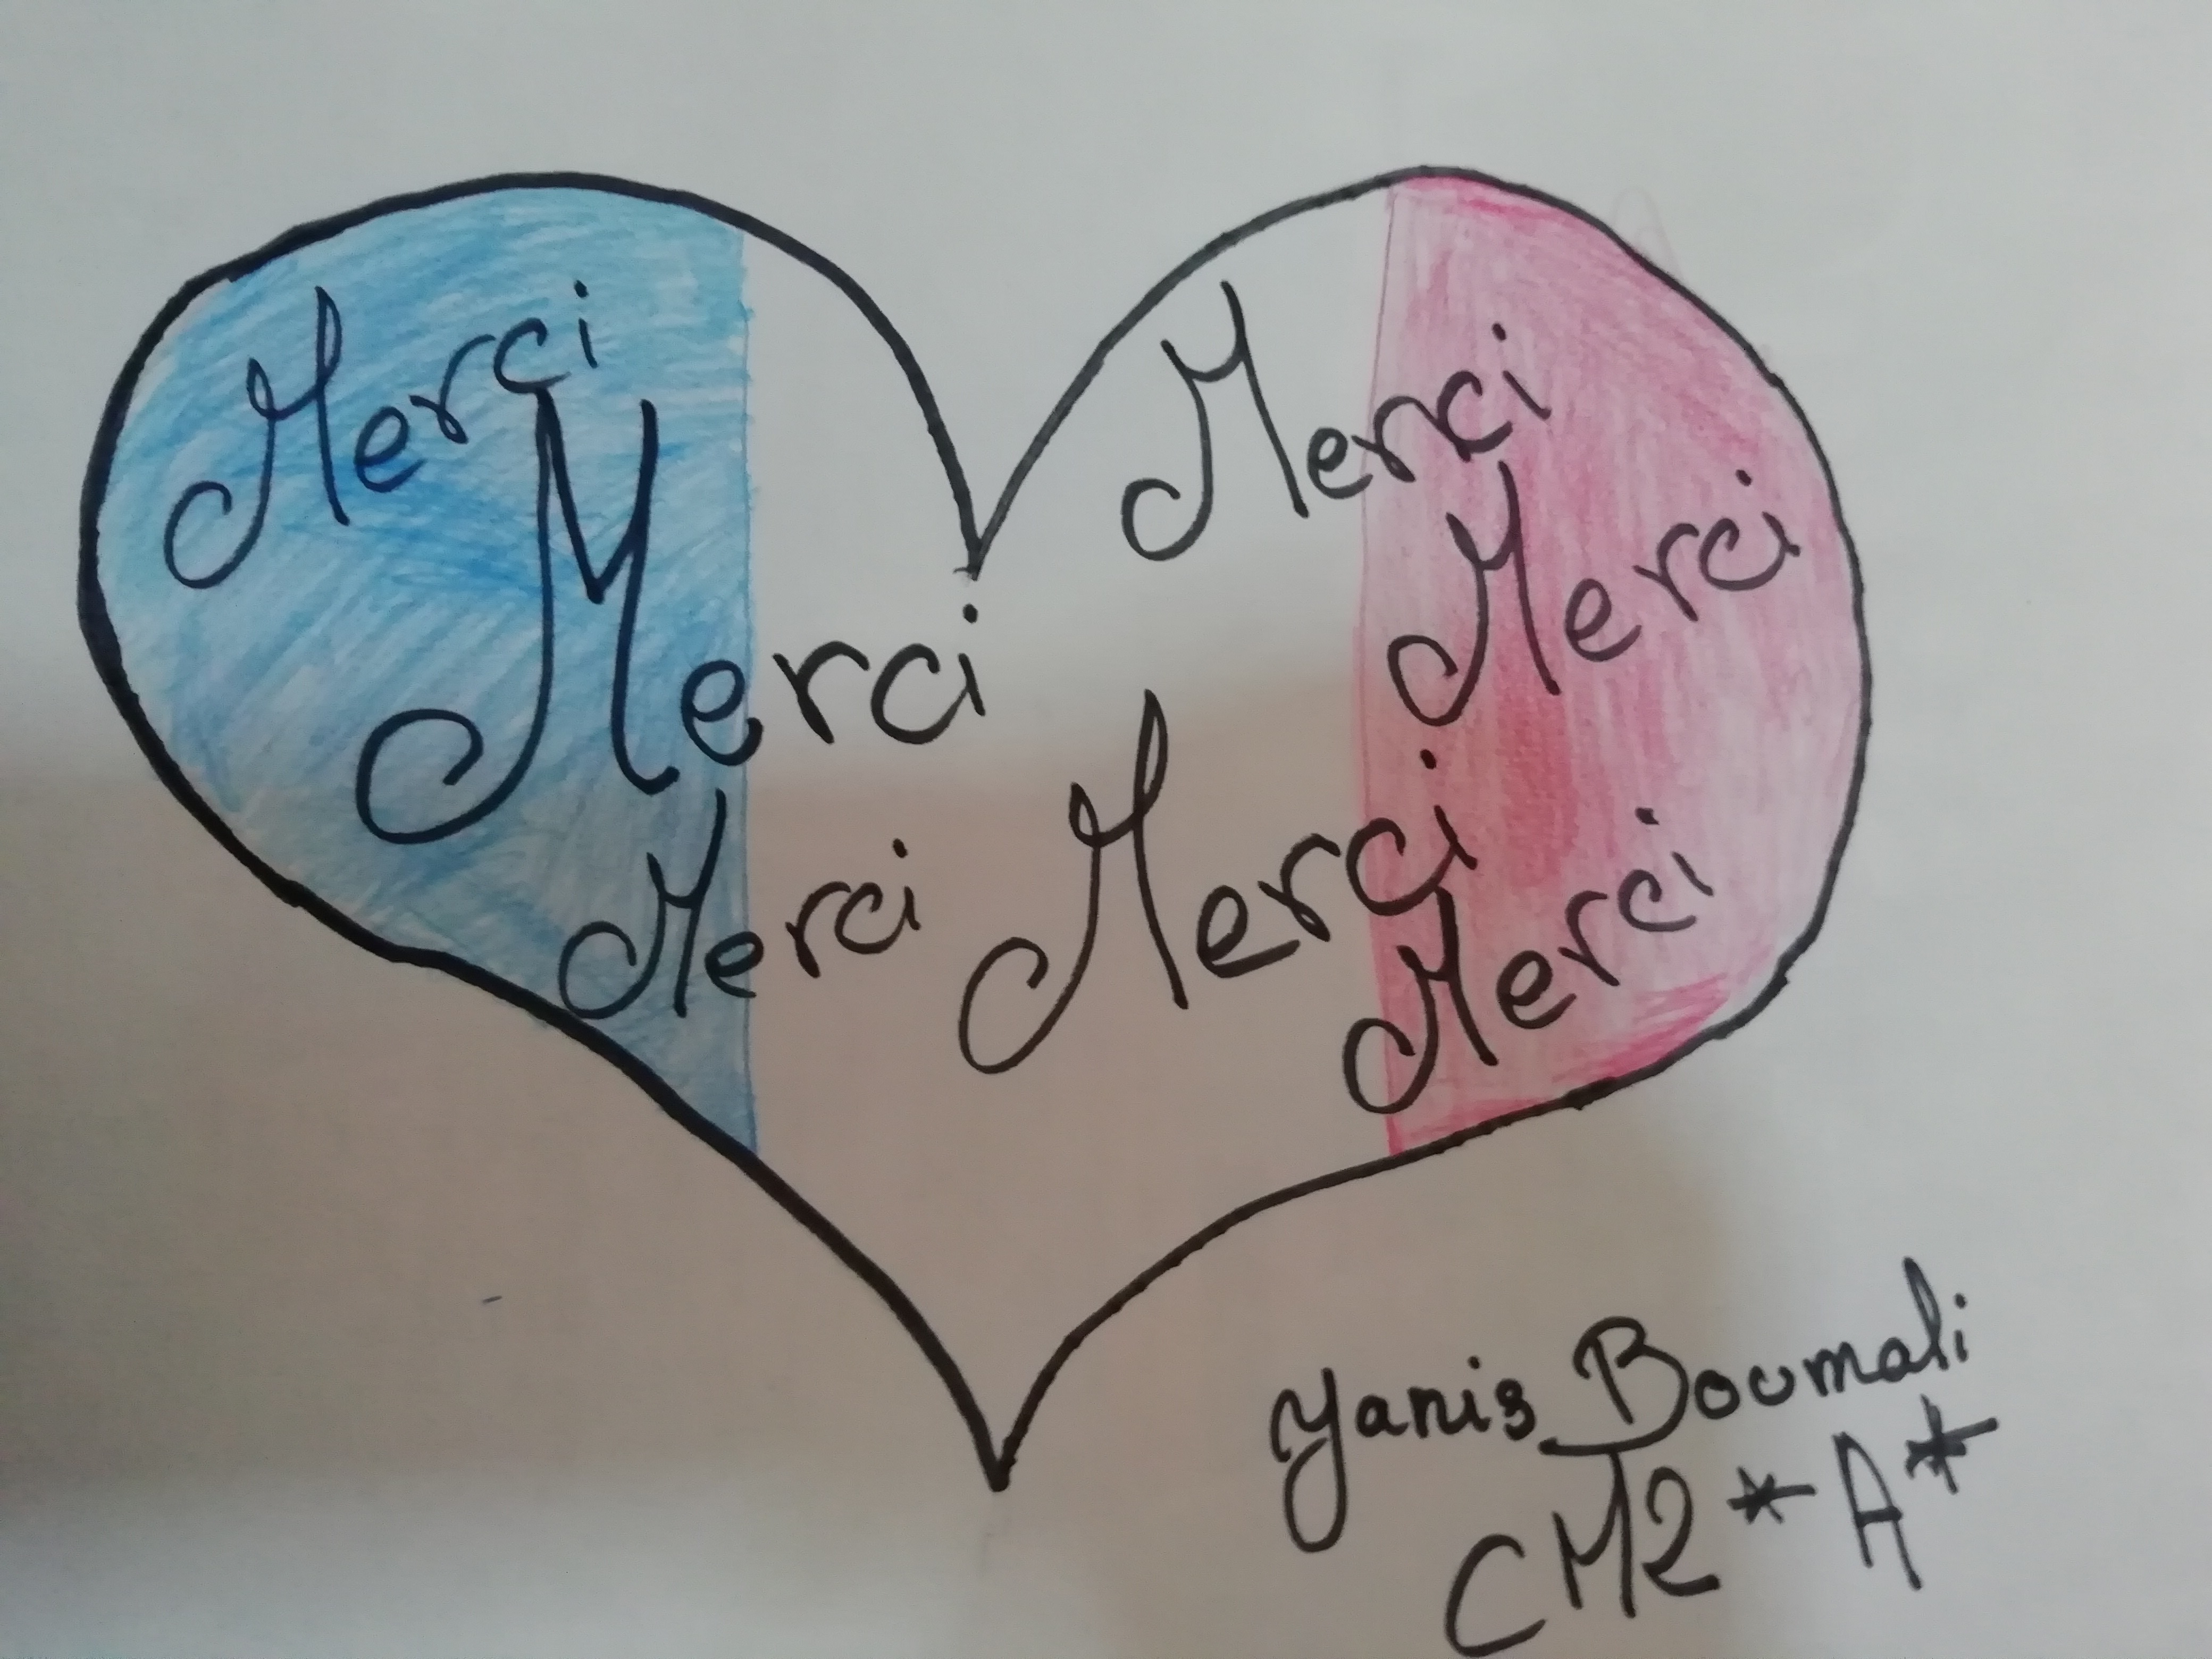 Merci
Merci
Merci
Merci
Merci
Merci
Merci
Yanis Boumali
CM2*A*